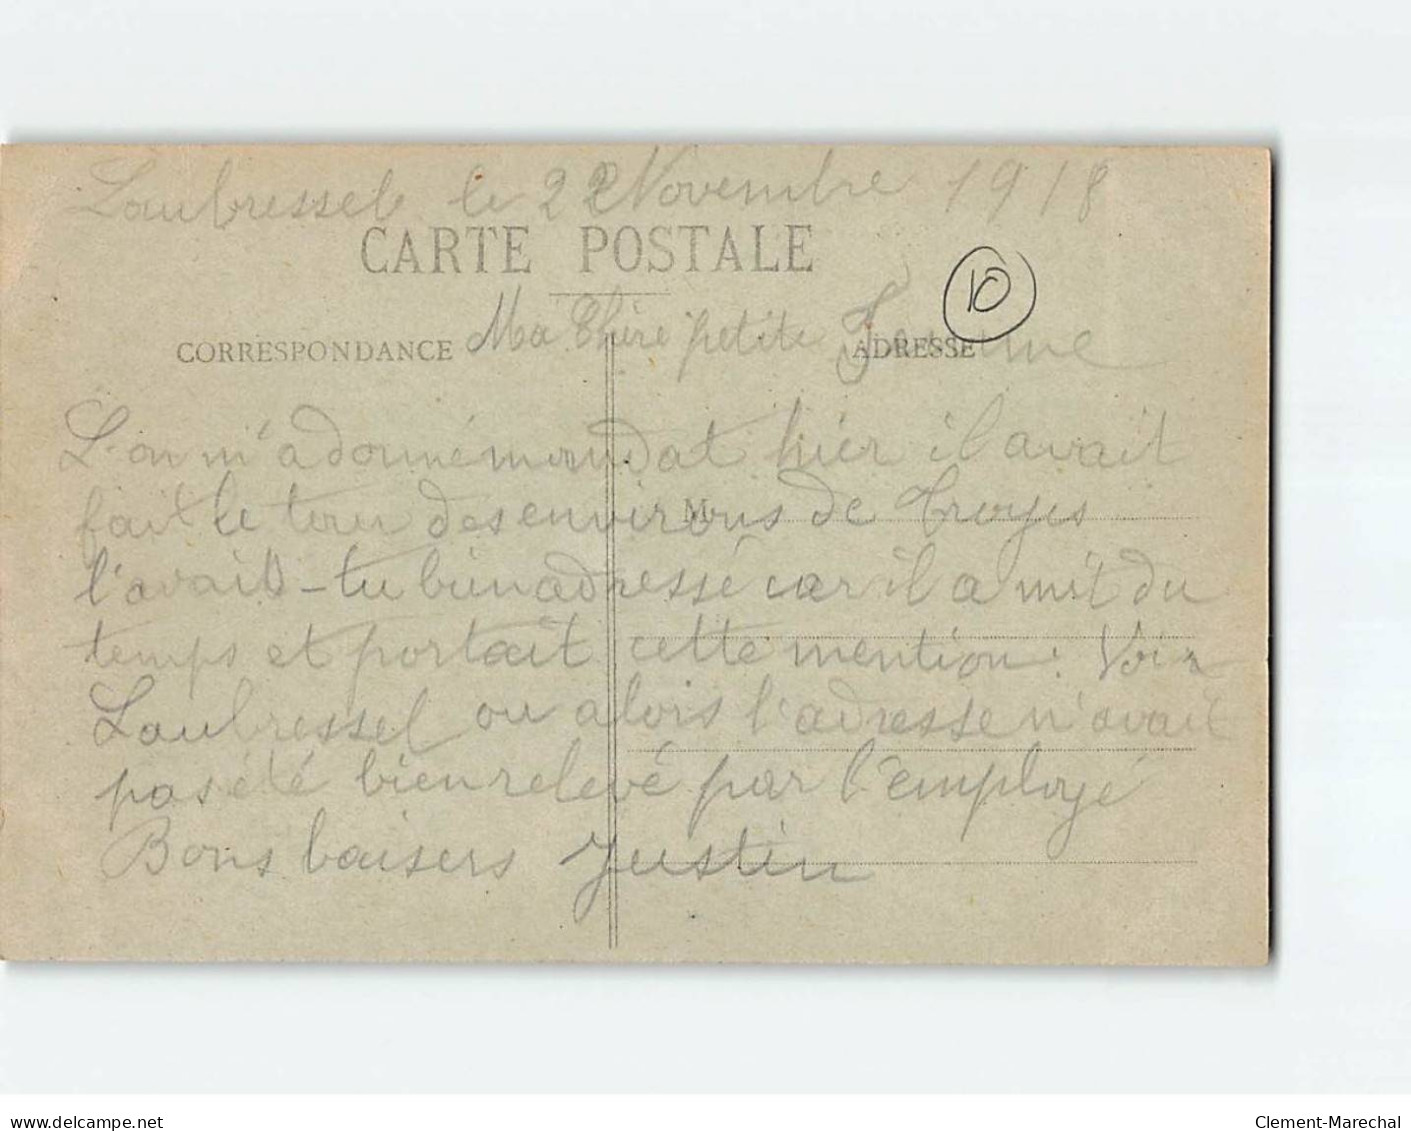 Laubressel le 22 Novembre 1918
CARTE POSTALE
10
CORRESPONDANCE
Ma Chère petite
ADRESSE
L'on m'a donné mandat hier il avait
fait le tour des environs de Troyes
M
l'avait-tu bien adressé car il a mit du
temps et portait cette mention : Voir
Laubressel ou alors l'adresse n'avait
pas été bien relevé par l'employé
Bons baisers Justin
delcampe.net
Clement-Marechal